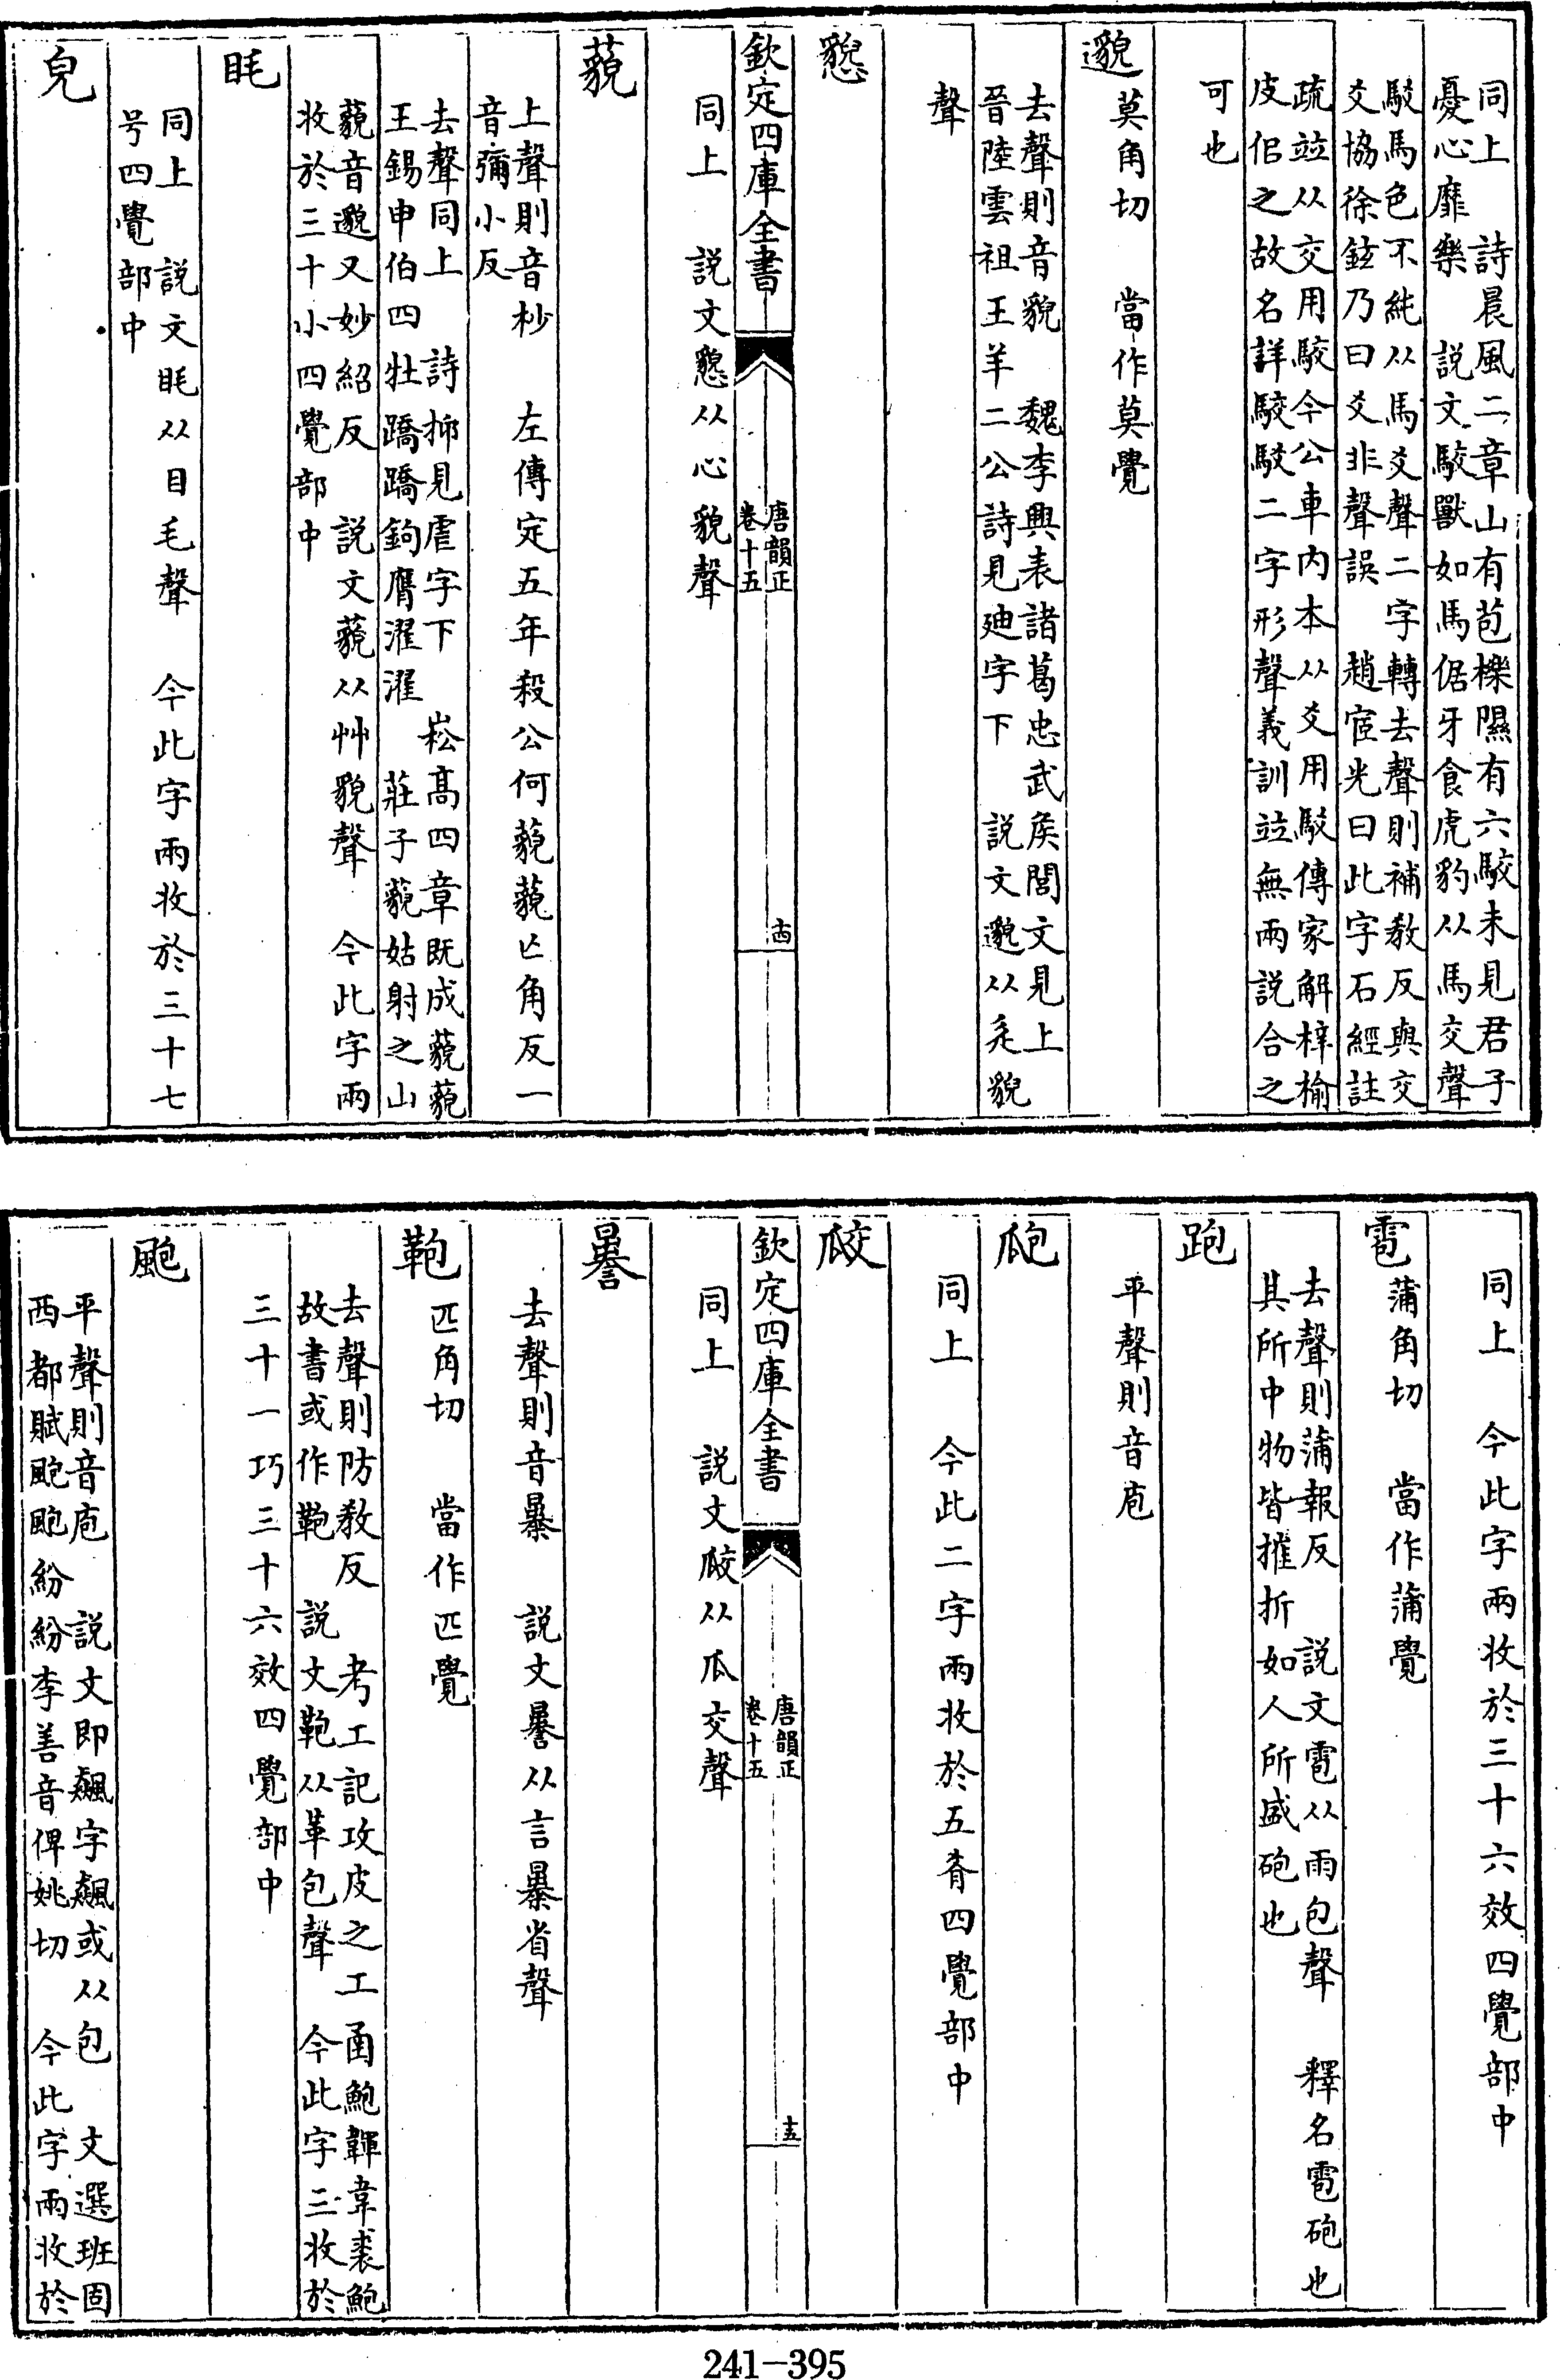 同上　詩晨風二章山有苞櫟隰有六駮未見君子
憂心靡樂　説文駮獸如馬倨牙食虎豹从馬交聲
駁馬色不純从馬爻聲二字轉去聲則補教反與交
爻協徐鉉乃曰爻非聲誤　趙宧光曰此字石經註
疏竝从交用駮今公車内本从爻用駁傳家解梓榆
皮佀之故名詳駮駁二字形聲義訓竝無兩説合之
可也
邈　莫角切　當作莫覺
去聲則音貌　魏李興表諸葛忠武侯閭文見上
晉陸雲祖王羊二公詩見廸字下　説文邈从辵貌
聲
㦝
欽定四庫全書
唐韻正
卷十五
十四
同上　説文㦝从心貌聲
藐
上聲則音杪　左傳定五年殺公何藐藐亡角反一
音彌小反
去聲同上　詩抑見虐字下　崧高四章既成藐藐
王錫申伯四牡蹻蹻鉤膺濯濯　莊子藐姑射之山
藐音邈又妙紹反　説文藐从艸貌聲　今此字兩
收於三十小四覺部中
眊
同上　説文眊从目毛聲　今此字兩收於三十七
号四覺部中
皃
同上　今此字兩收於三十六效四覺部中
雹　蒲角切　當作蒲覺
去聲則蒲報反　説文雹从雨包聲　釋名雹砲也
其所中物皆摧折如人所盛砲也
跑
平聲則音庖
瓟
同上　今此二字兩收於五肴四覺部中
㼎
欽定四庫全書
唐韻正
卷十五
十五
同上　説文㼎从瓜交聲
謈
去聲則音暴　説文謈从言暴省聲
鞄　匹角切　當作匹覺
去聲則防教反　考工記攻皮之工函鮑韗韋裘鮑
故書或作鞄　説文鞄从革包聲　今此字三收於
三十一巧三十六效四覺部中
颮
平聲則音庖　説文即飆字飆或从包　文選班固
西都賦颮颮紛紛李善音俾姚切　今此字兩收於
241-395